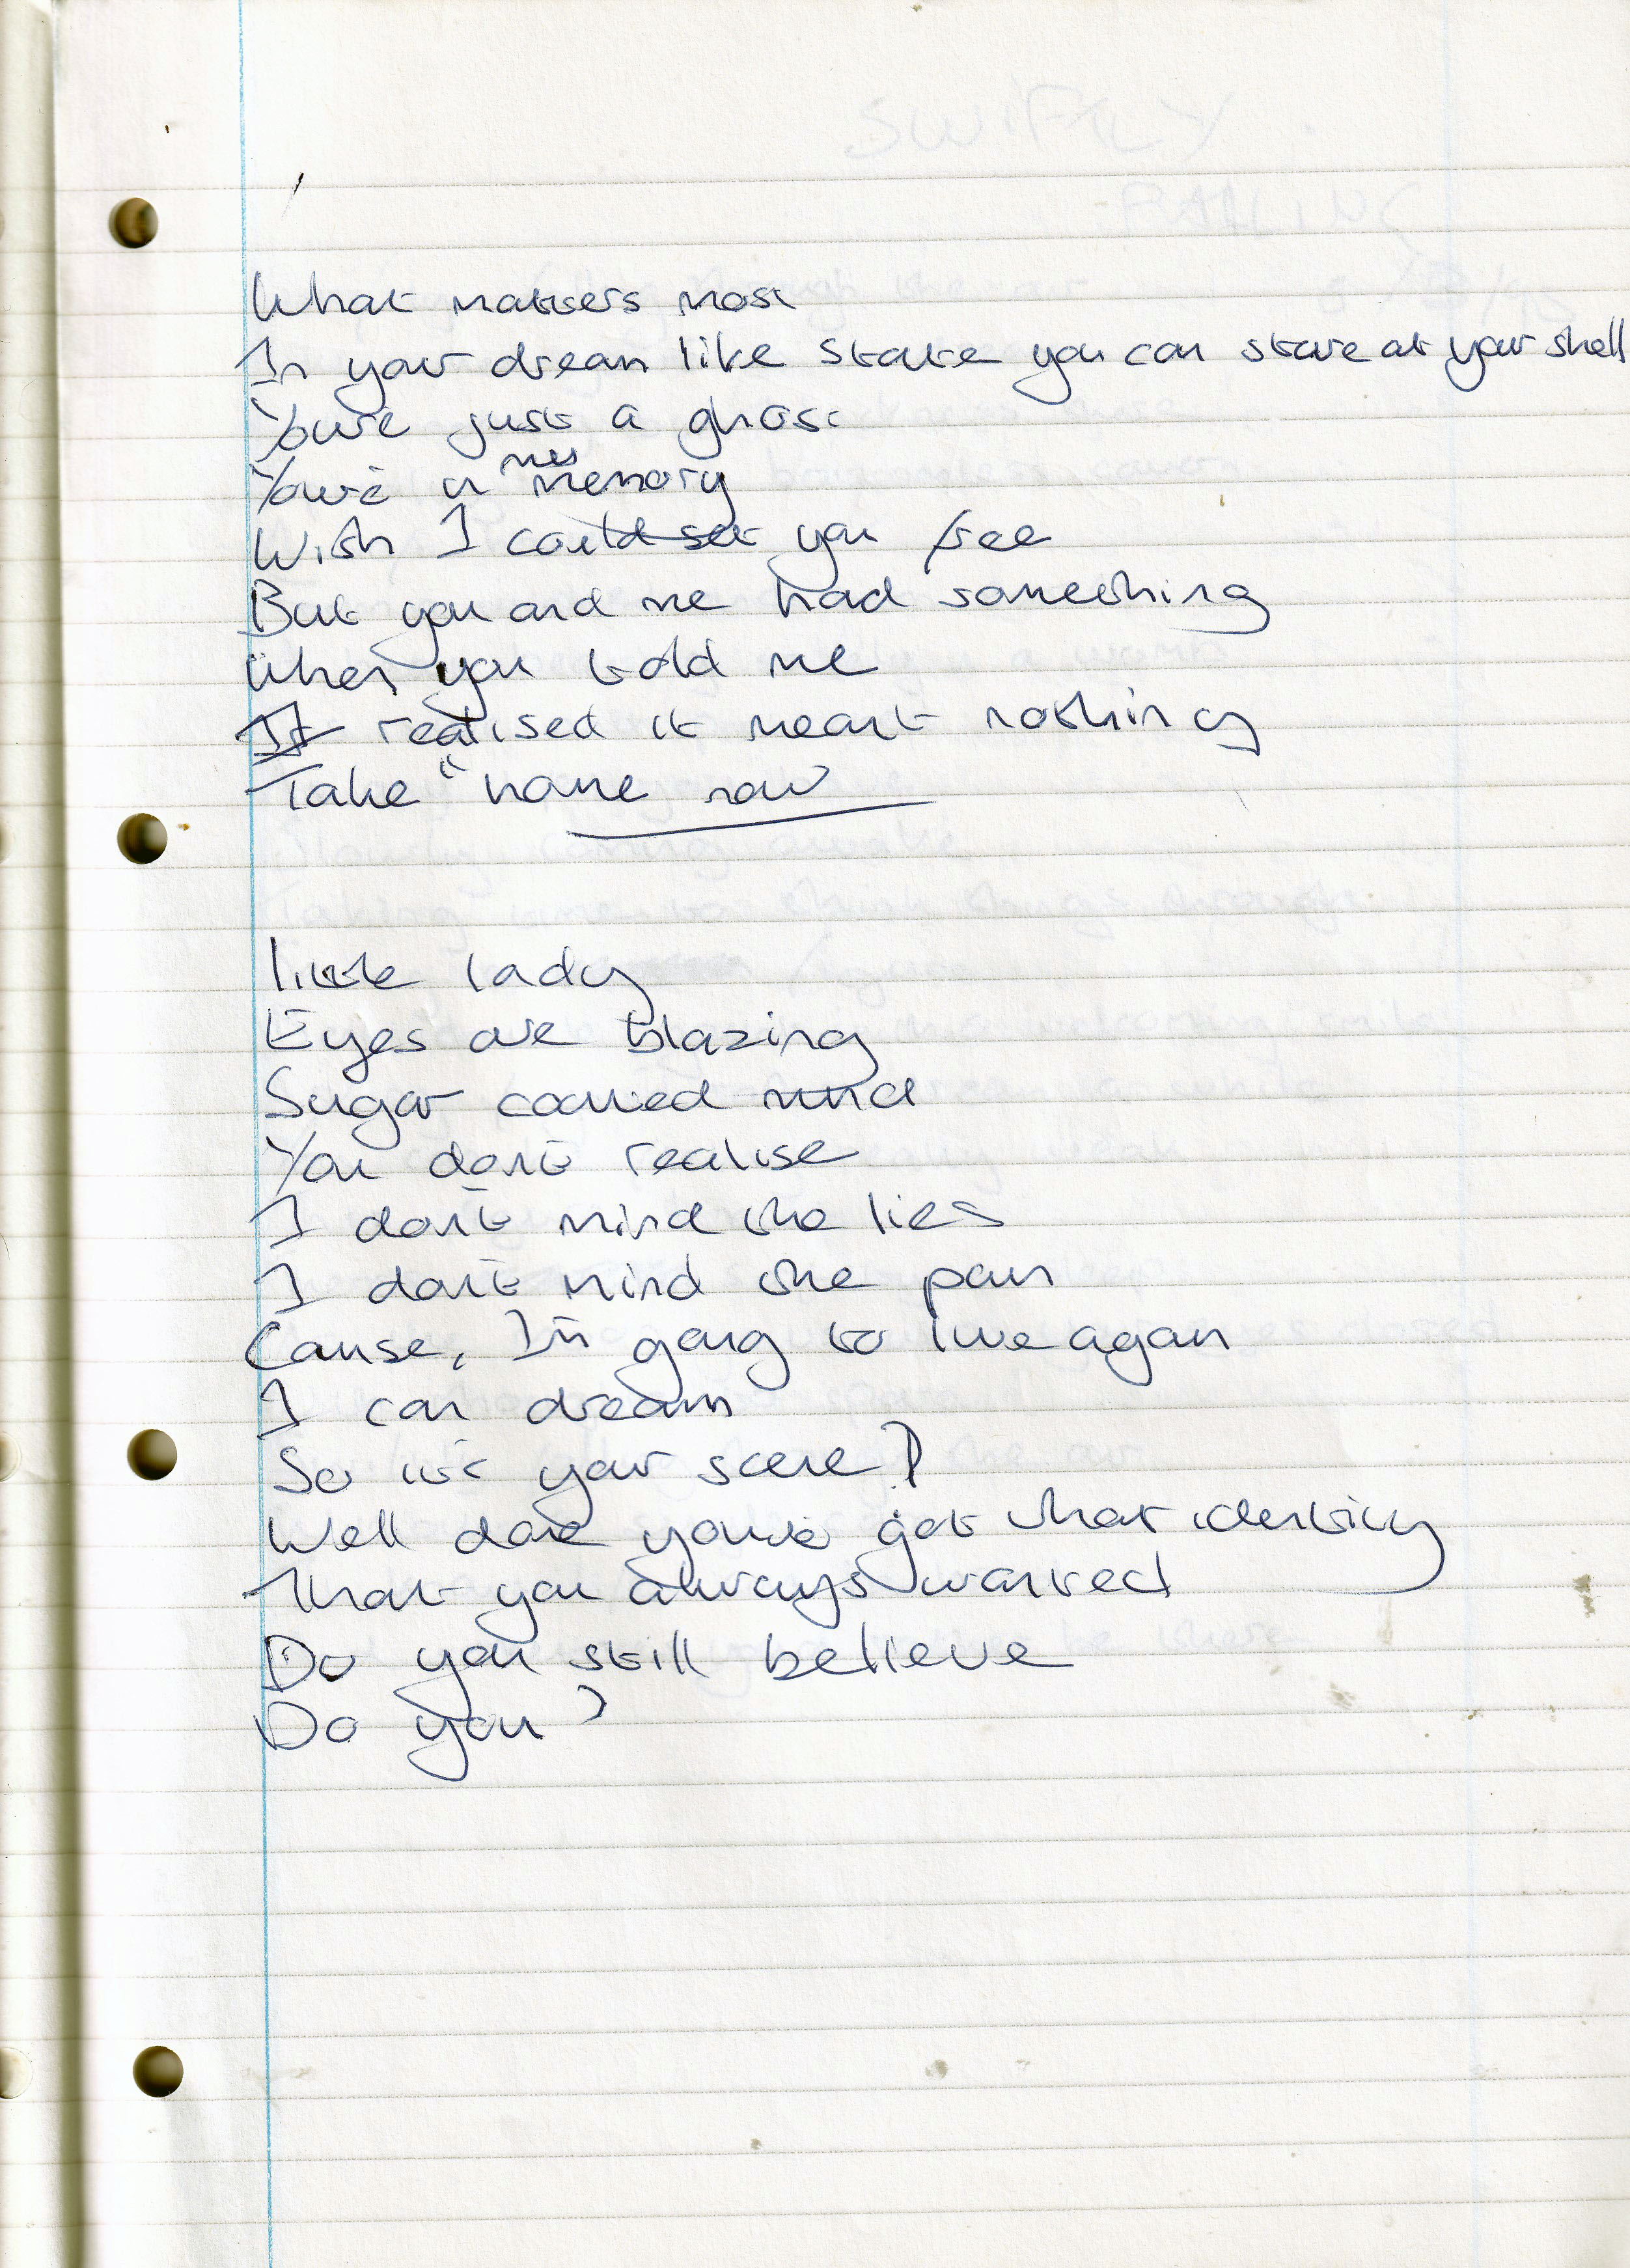 What matters most
In your dream like state you can stare at your shell
You're just a ghost
You're a memory
Wish I could set you free
But you and me had something
When you told me
I realised it meant nothing
Take " home now
little lady
Eyes are blazing
Sugar coated mind
You don't realise
I don't mind the lies
I don't mind the pain
Cause, I'm going to live again
I can dream
So it's your scene?
Well done you've got that identity
That you always wanted
Do you still believe
Do you?